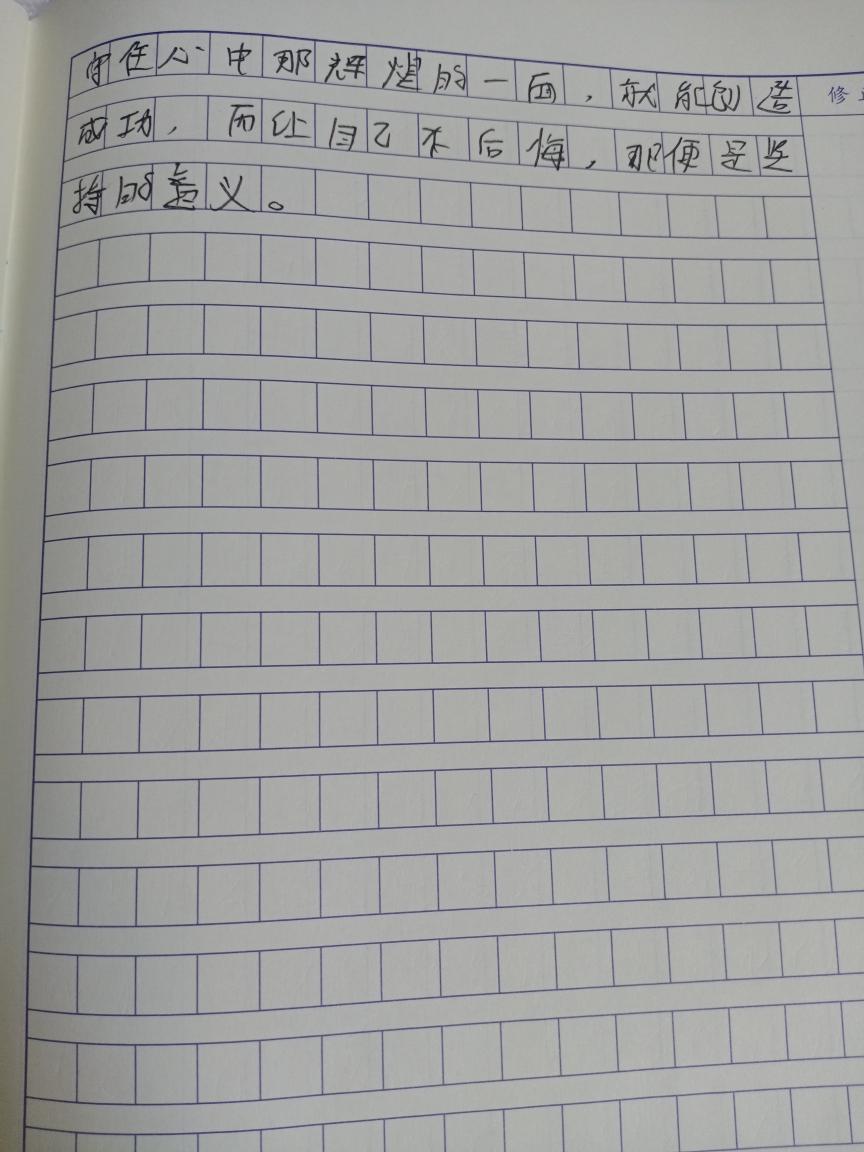 守住心中那辉煌的一面，就能创造
成功，而让自己不后悔，那便是坚
持的意义。
修